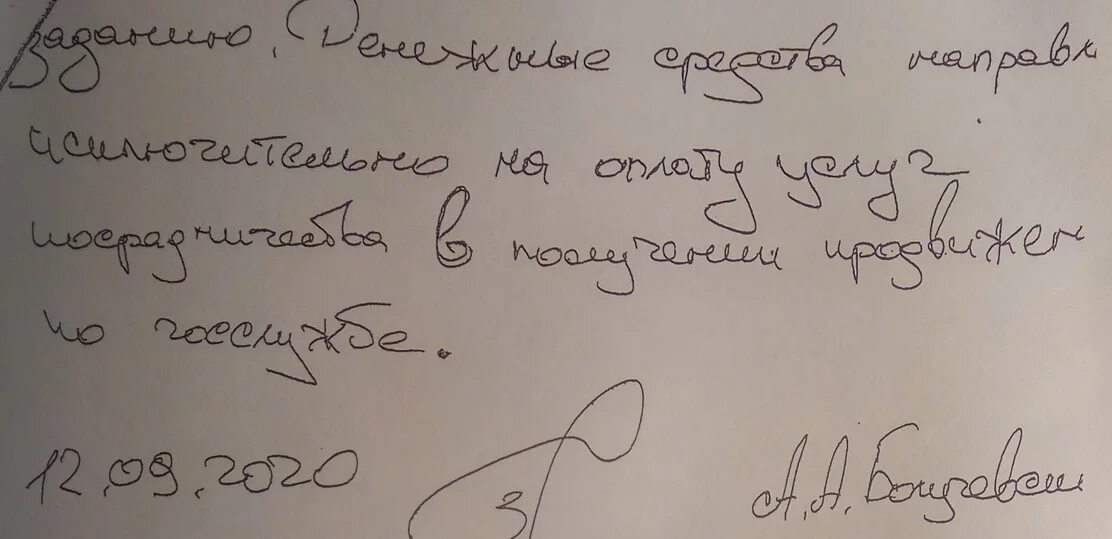 заданию. Денежные средства направл
исключительно на оплату услуг
посредничества в получении продвижен
по госслужбе.
12.09.2020 А.А.